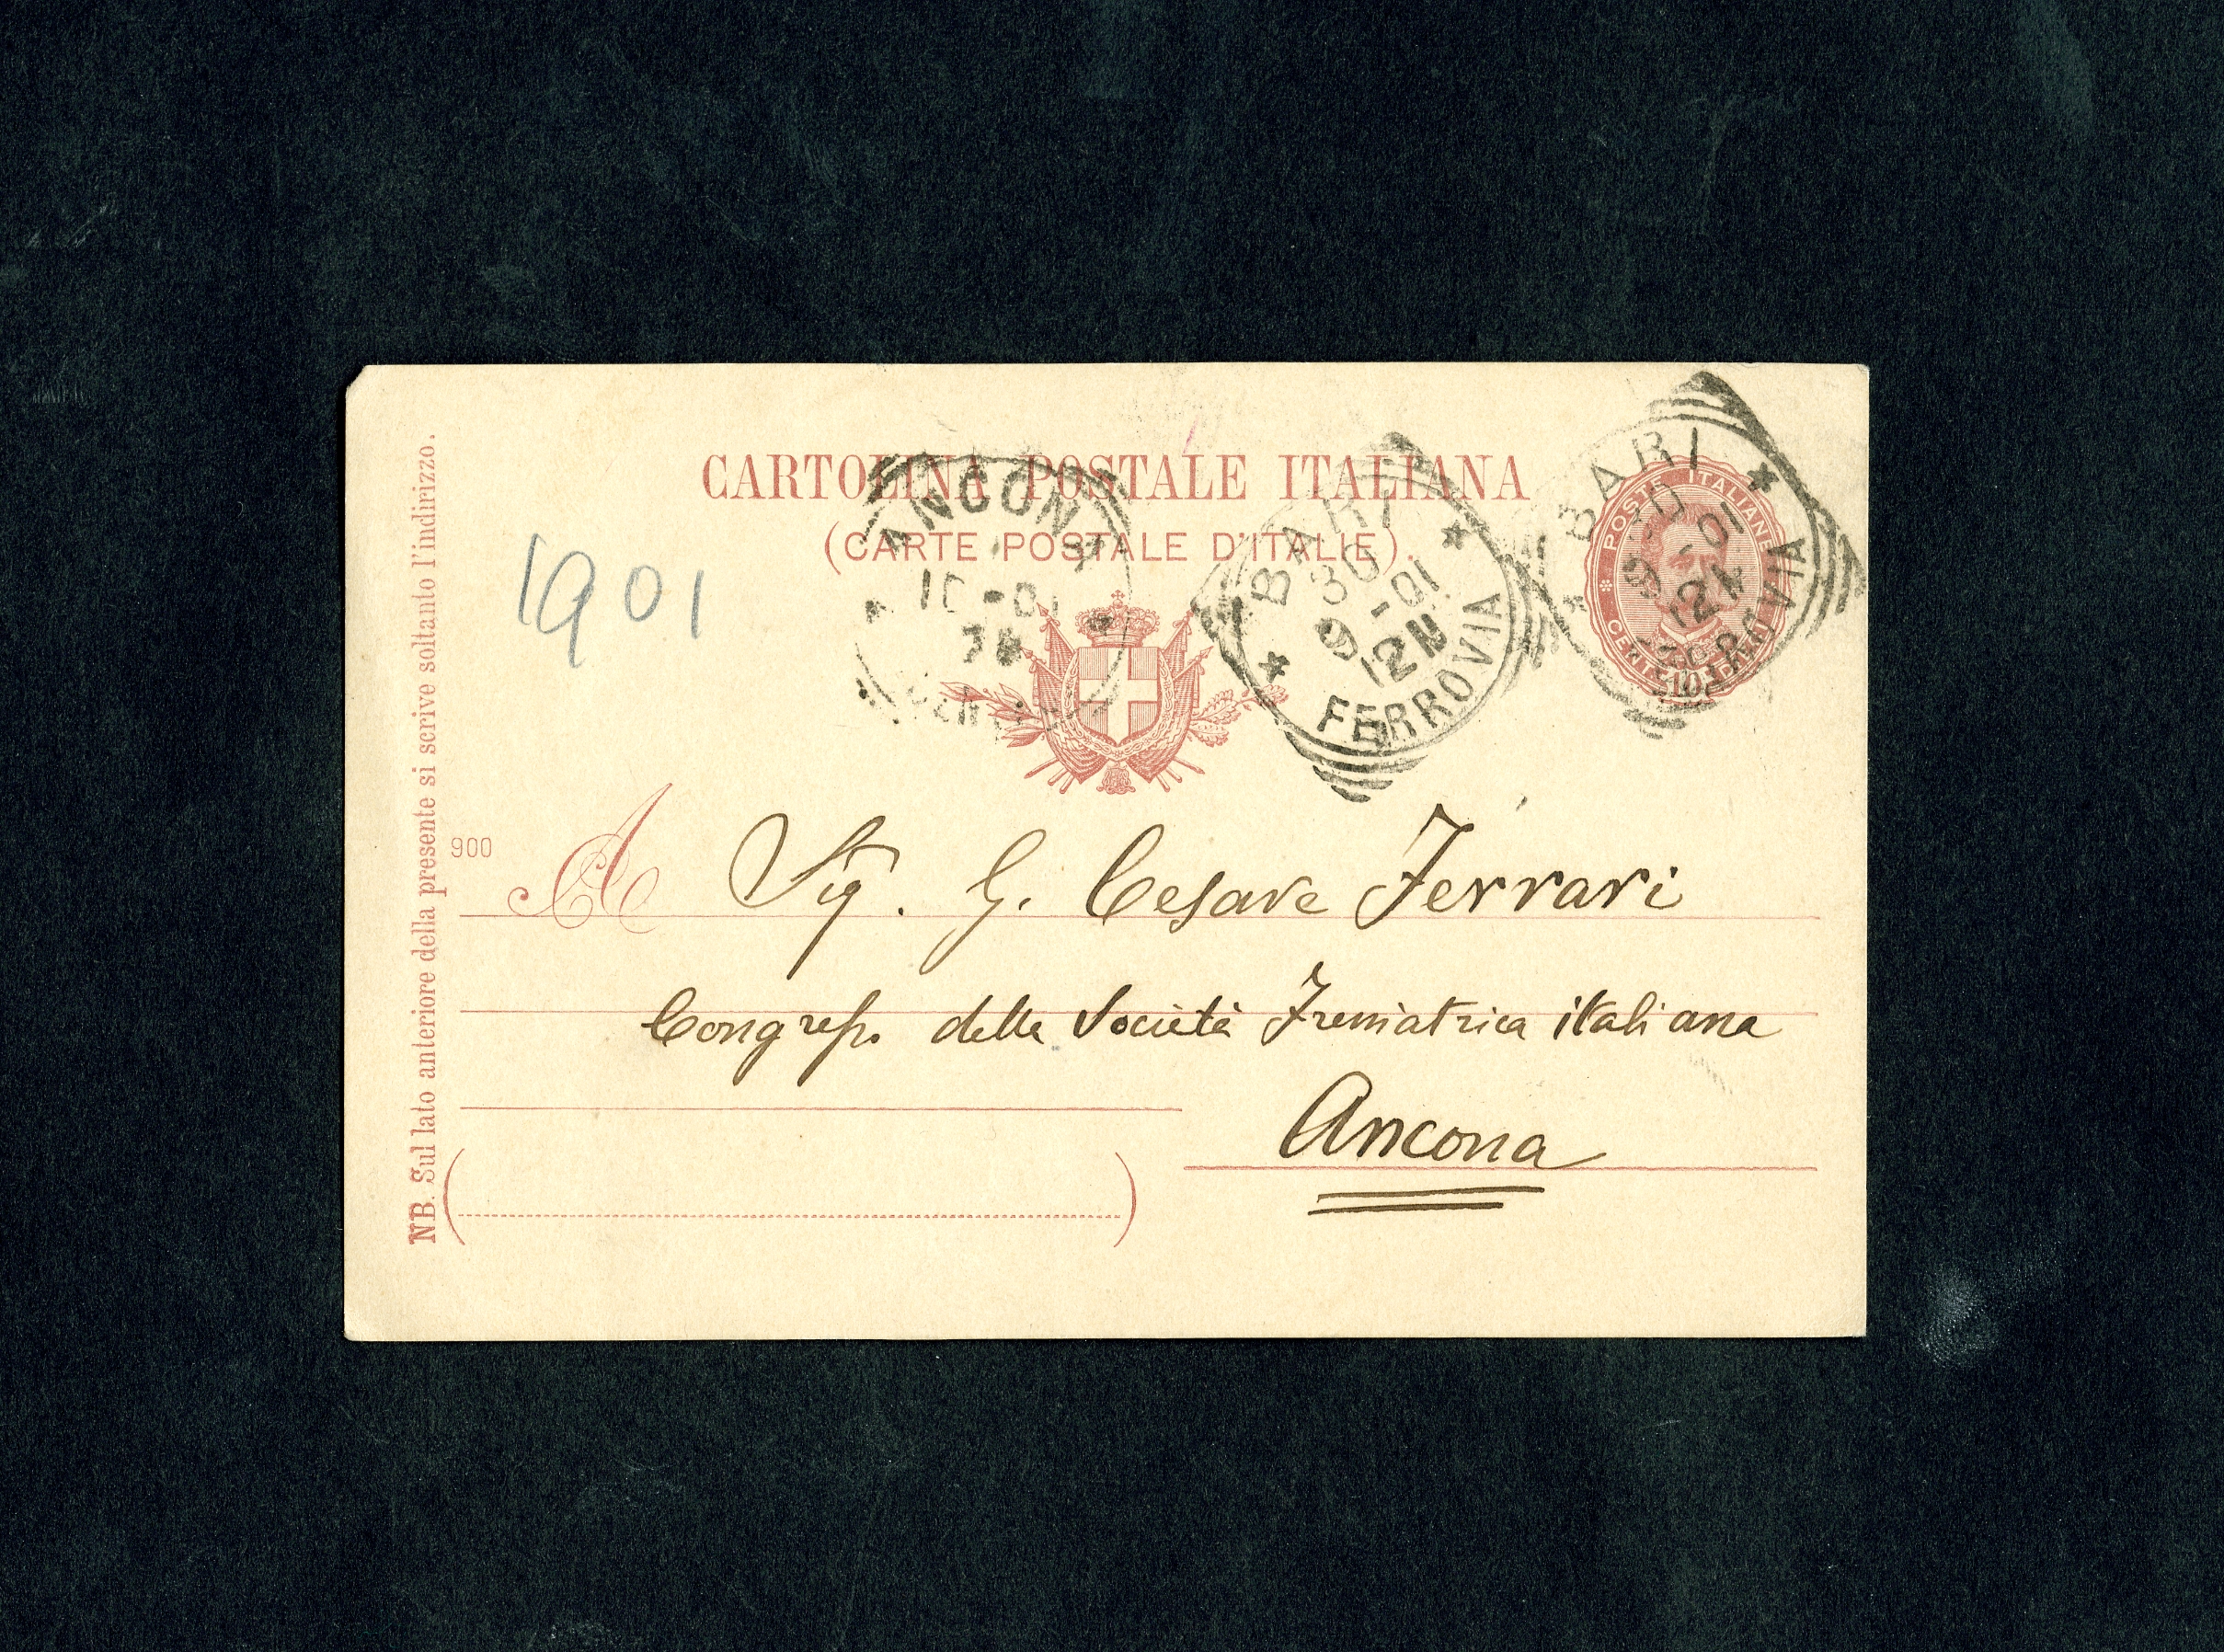 CARTOLINA POSTALE ITALIANA
(CARTE POSTALE D'ITALIE).
ANCONA
BARI
30
9-01
12M
FERROVIA
BARI
30
9-01
12M
FERROVIA
POSTE ITALIANE
10
1901
NB. Sul lato anteriore della presente si scrive soltanto l'indirizzo.
900
A Sig. G. Cesare Ferrari
Congress. della Società Freniatrica italiana
Ancona